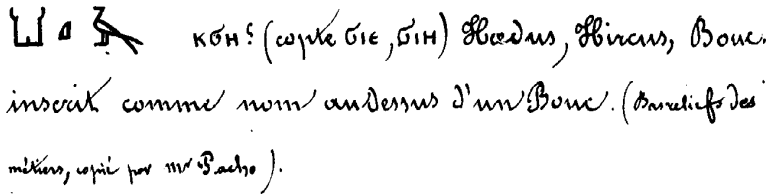 ⲕϭⲏⲥ (copte ϭⲓⲉ, ϭⲓⲏ) Hœdus, Hircus, Bouc.
inscrit comme nom audessus d'un Bouc. (Basreliefs des
métiers, copié par mr Pacho).